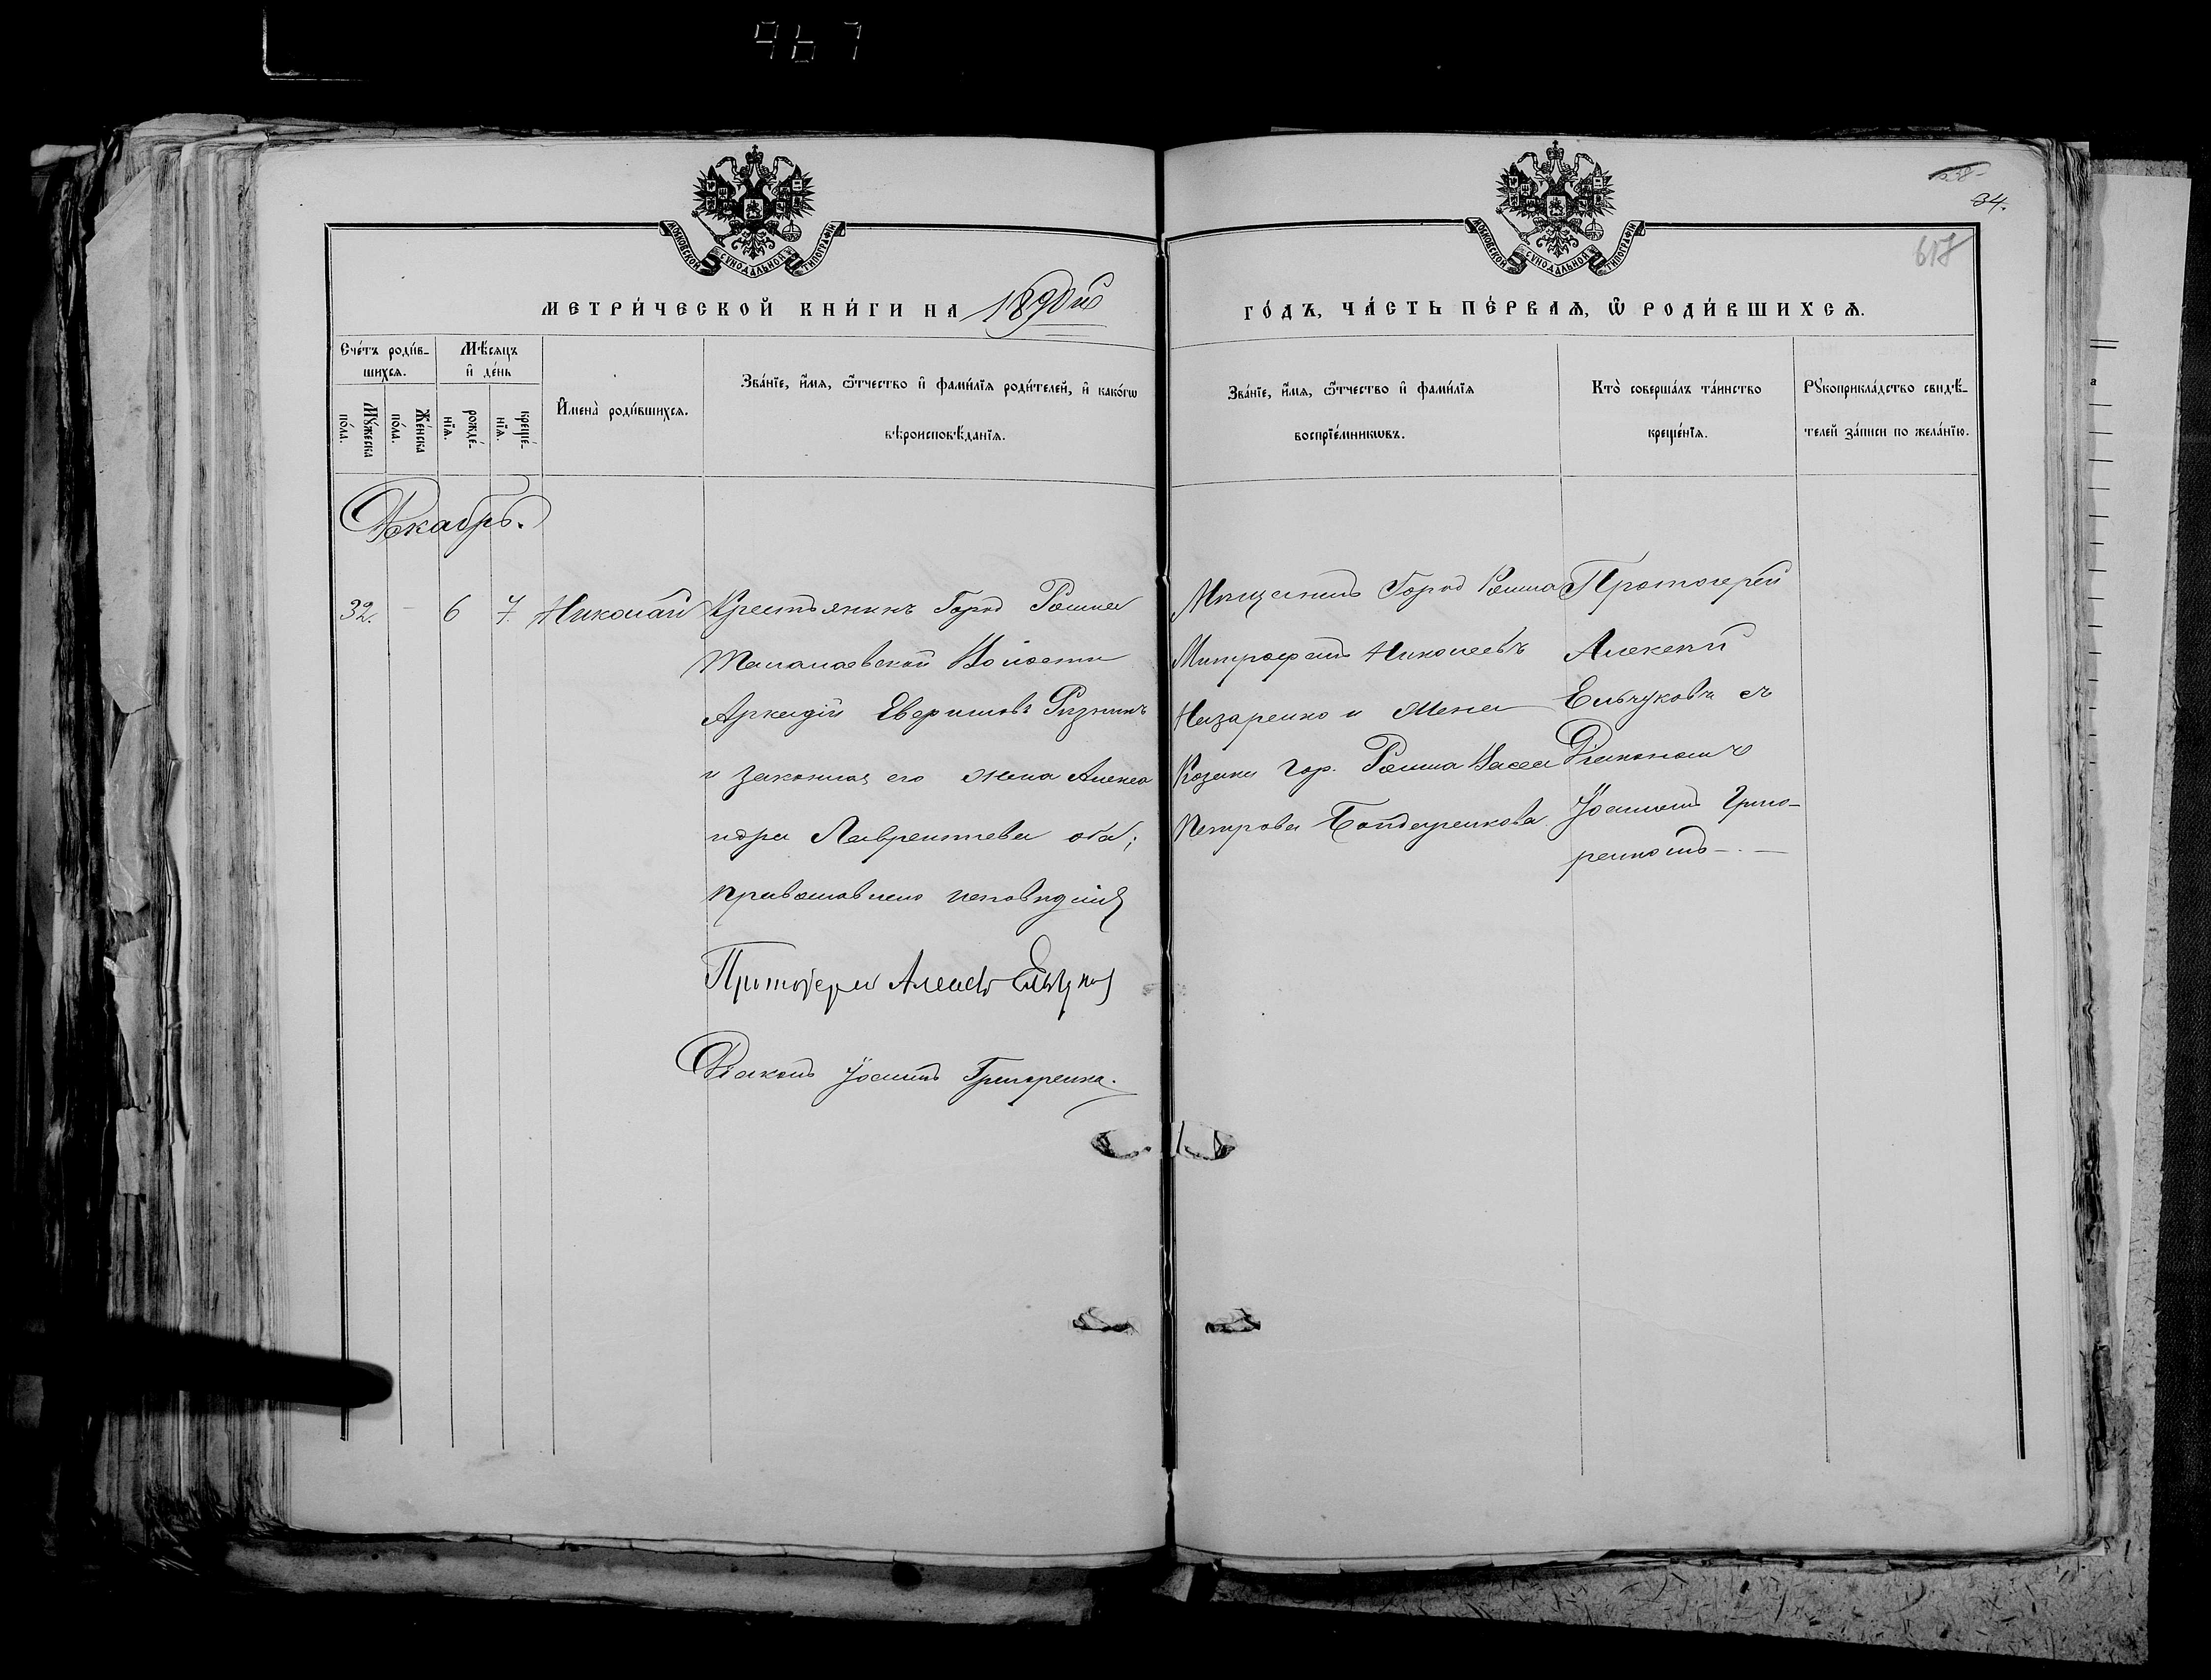 967
38
34.
617
МОСКОВСКОЙ СѴНОДАЛЬНОЙ ТИПОГРАФІИ
МОСКОВСКОЙ СѴНОДАЛЬНОЙ ТИПОГРАФІИ
МЕТРИ́ЧЕСКОЙ КНИ́ГИ НА 1890й
ГО́ДЪ, ЧА́СТЬ ПЕ́РВАѦ, Ѡ҆ РОДИ́ВШИХСѦ.
Сче́тъ роди́в-
шихсѧ.
Мѣ́сѧцъ
и҆ де́нь
Мꙋ́жеска
по́ла.
Же́нска
по́ла.
рожде́-
нїѧ.
креще́-
нїѧ.
И҆мена̀ роди́вшихсѧ.
Зва́нїе, и҆́мѧ, ѻ҆́тчество и҆ фами́лїѧ роди́телей, и҆ како́гѡ
вѣроисповѣ́данїѧ.
Зва́нїе, и҆́мѧ, ѻ҆́тчество и҆ фами́лїѧ
воспрїе́мникѡвъ.
Кто̀ соверша́лъ та́инство
креще́нїѧ.
Рꙋкоприкла́дство свидѣ́-
телей за́писи по жела́нїю.
Декабрь.
32. - 6 7. Николай
Крестьянинъ Город Ромна
Талалаевской Волости
Аркадій
и законная его жена Алекса
ндра Лаврентиева оба;
православного исповѣданія
Протоіерей Алексѣй Ельчуков
Діаконъ Іоаннъ Григоренко.
Мещанинъ Город Ромна
Митрофанъ Николаевъ
Назаренко и жена
Козака Гор. Ромна Васса
Петрова Бондаренкова
Протоіерей
Алексѣй
Ельчуковъ съ
Діакономъ
Іоанномъ Григо-
ренкомъ -.-